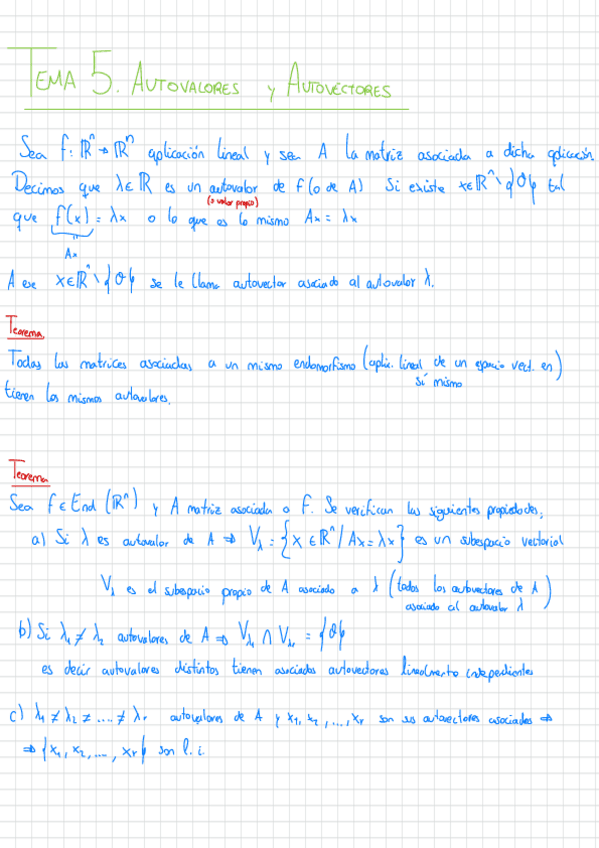 TEMA 5. AUTOVALORES y AUTOVECTORES
Sea f: ℝⁿ → ℝⁿ aplicación lineal y sea A la matriz asociada a dicha aplicación.
Decimos que λ∈ℝ es un autovalor de f (o de A) si existe x∈ℝⁿ\{0} tal
(o valor propio)
que f(x) = λx o lo que es lo mismo Ax = λx
Ax
A ese x∈ℝⁿ\{0} se le llama autovector asociado al autovalor λ.
Teorema
Todas las matrices asociadas a un mismo endomorfismo (aplic. lineal de un espacio vect. en)
sí mismo
tienen los mismos autovalores.
Teorema
Sea f∈End (ℝⁿ) y A matriz asociada a f. Se verifican las siguientes propiedades:
a) Si λ es autovalor de A ⇒ V_λ = {x∈ℝⁿ / Ax = λx} es un subespacio vectorial
V_λ es el subespacio propio de A asociado a λ (todos los autovectores de A)
asociado al autovalor λ
b) Si λ₁ ≠ λ₂ autovalores de A ⇒ V_λ₁ ∩ V_λ₂ = {0}
es decir autovalores distintos tienen asociados autovectores linealmente independientes
c) λ₁ ≠ λ₂ ≠ .... ≠ λᵣ autovalores de A y x₁, x₂, ..., xᵣ son sus autovectores asociados ⇒
⇒ {x₁, x₂, ..., xᵣ} son l. i.